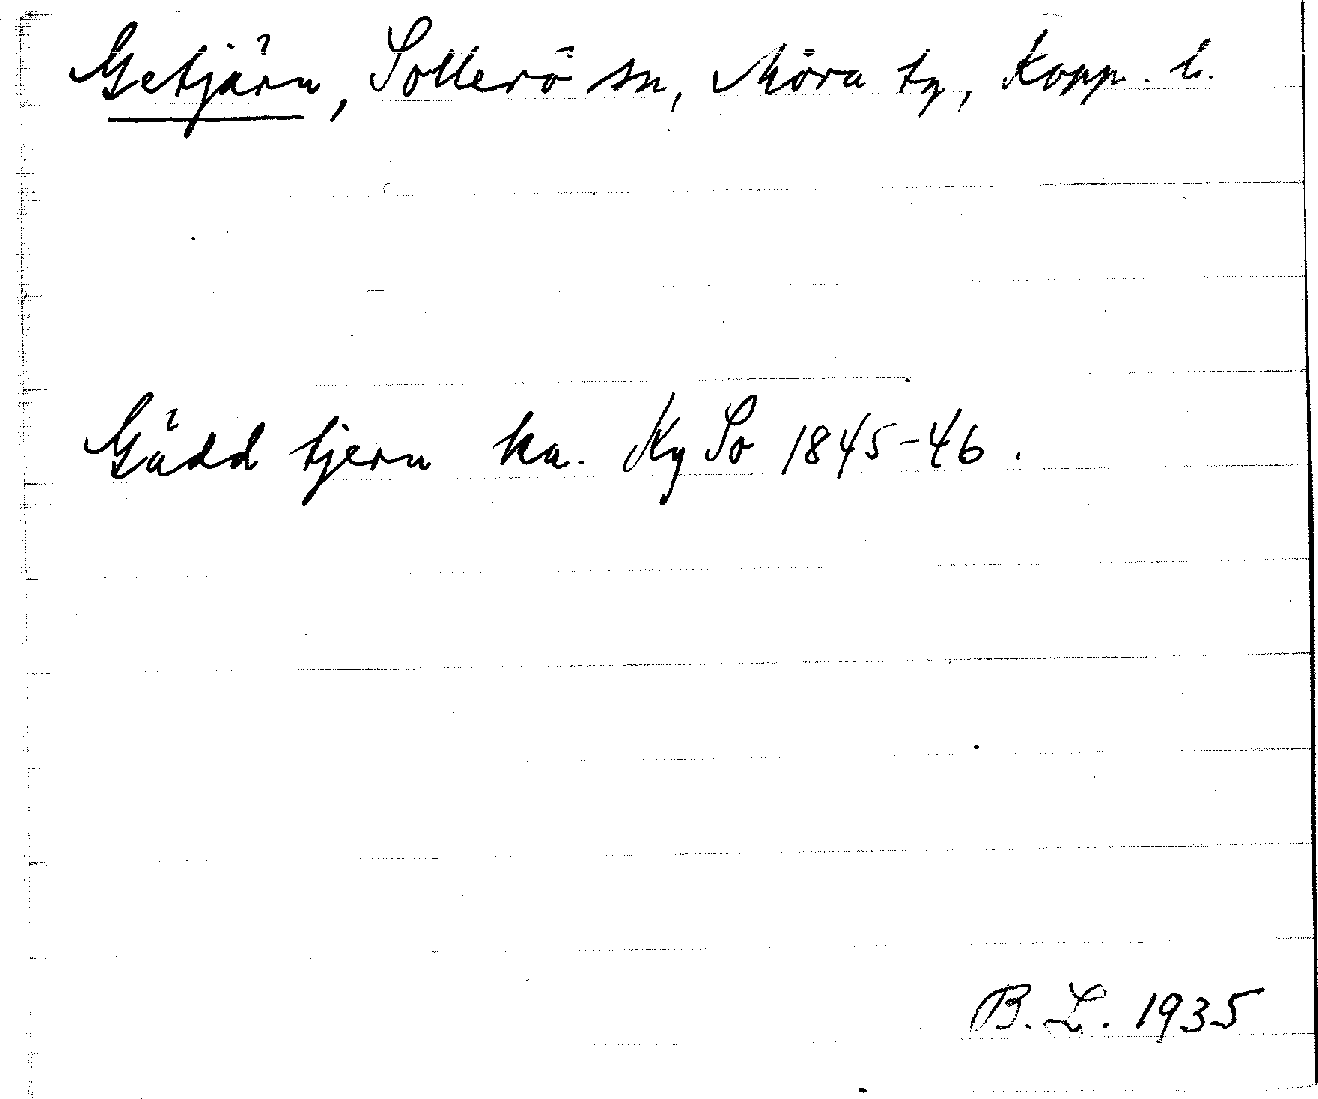 Getjärn, Sollerö sn, Mora tg, Kopp. l.
Gädd tjern ka. Ky So 1845-46.
B.L. 1935